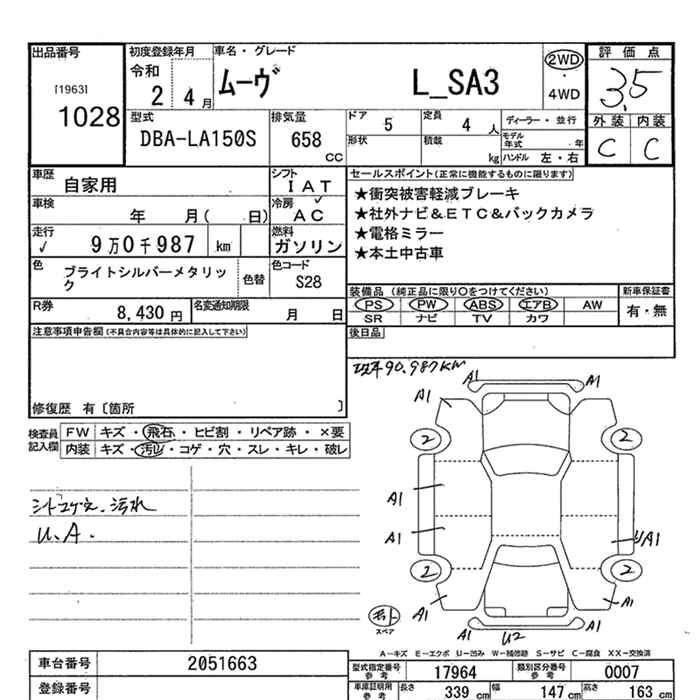 出品番号
[1963]
1028
初度登録年月
令和
2 4月
車名・グレード
ムーヴ L_SA3
2WD
・
4WD
評価点
3.5
外装 内装
C C
型式
DBA-LA150S
排気量
658
CC
ドア
5
定員
4
人
ディーラー・並行
形状
積載
kg
モデル年式 年
ハンドル 左・右
車歴
自家用
シフト
IAT
車検
年 月( 日)
冷房
AC
走行
✓
9万0千987 km
燃料
ガソリン
色
ブライトシルバーメタリック
色替
色コード
S28
R券
8,430 円
名変通知期限
月 日
セールスポイント(正常に機能するものに限ります)
★衝突被害軽減ブレーキ
★社外ナビ&ETC&バックカメラ
★電格ミラー
★本土中古車
装備品 (純正品に限り〇をつけてください)
新車保証書
PS PW ABS エアB AW
SR ナビ TV カワ
有・無
後日品
注意事項申告欄(不具合内容等は具体的に記入して下さい)
修復歴 有〔箇所 〕
検査員記入欄
FW キズ・飛石・ヒビ割・リペア跡・×要
内装 キズ・汚れ・コゲ・穴・スレ・キレ・破レ
汚れ
U.A.
90.987KM
A1 A1
A1 A1
2 2
A1
A1 A1
2 2
A1 A1
スペア
A1 U2 A1
A-キズ E-エクボ U-凹み W-補修跡 S-サビ C-腐食 XX-交換済
車台番号
2051663
登録番号
型式指定番号参考
17964
類別区分番号参考
0007
車庫証明用参考
長さ 339 cm
幅 147 cm
高さ 163 cm